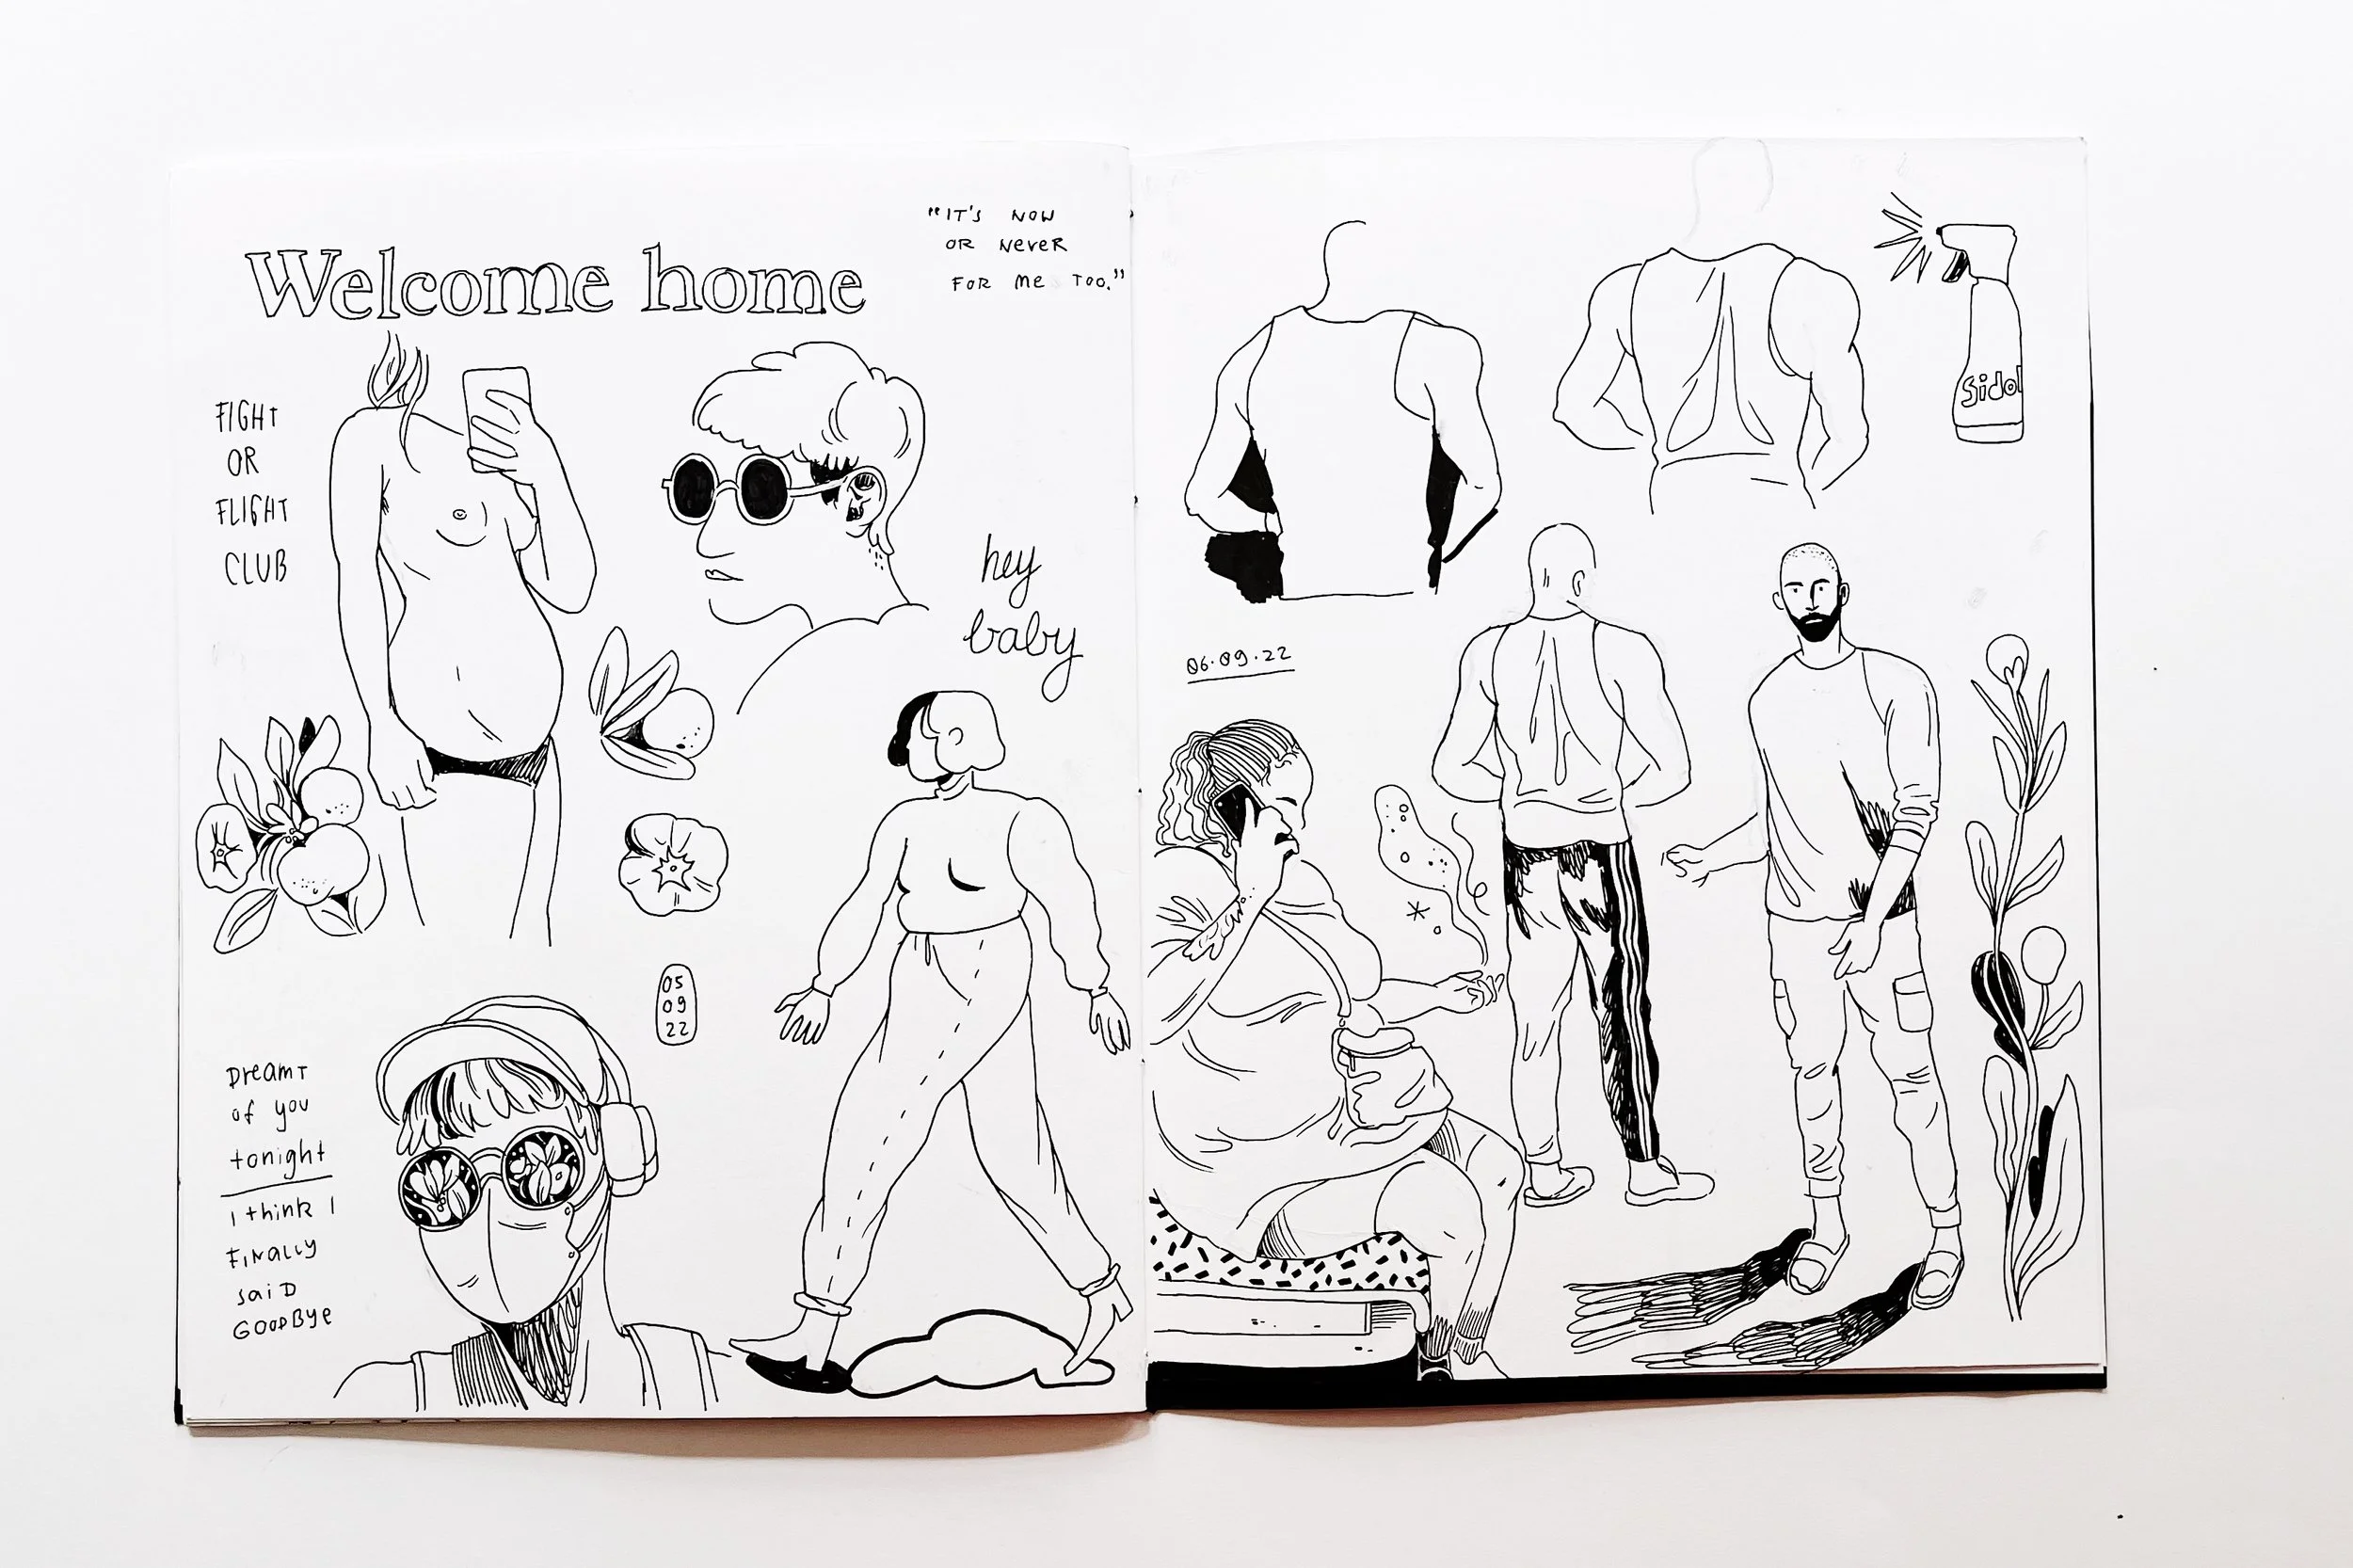 Welcome home
"IT'S NOW
OR NeveR
FOR me TOO."
FIGHT
OR
FLIGHT
CLUB
hey
baby
05
09
22
Dreamt
of you
tonight
I think I
FINALLY
saiD
GOODBYe
Sidol
06.09.22